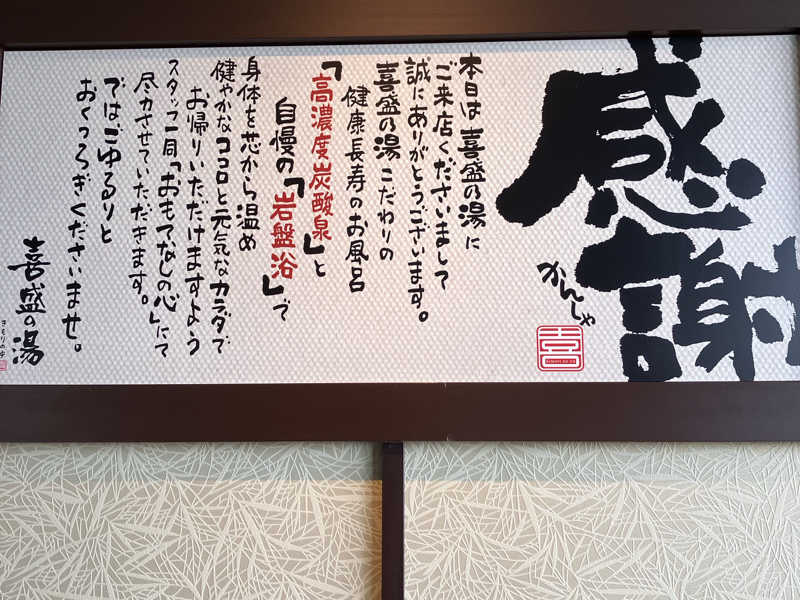 感謝
かんしゃ
喜
本日は 喜盛の湯に
ご来店くださいまして
誠にありがとうございます。
喜盛の湯 こだわりの
健康長寿のお風呂
「高濃度炭酸泉」と
自慢の「岩盤浴」で
身体を芯から温め
健やかなココロと元気なカラダで
お帰りいただけますよう
スタッフ一同「おもてなしの心」にて
尽力させていただきます。
ではごゆるりと
おくつろぎくださいませ。
喜盛の湯
きもりのゆ